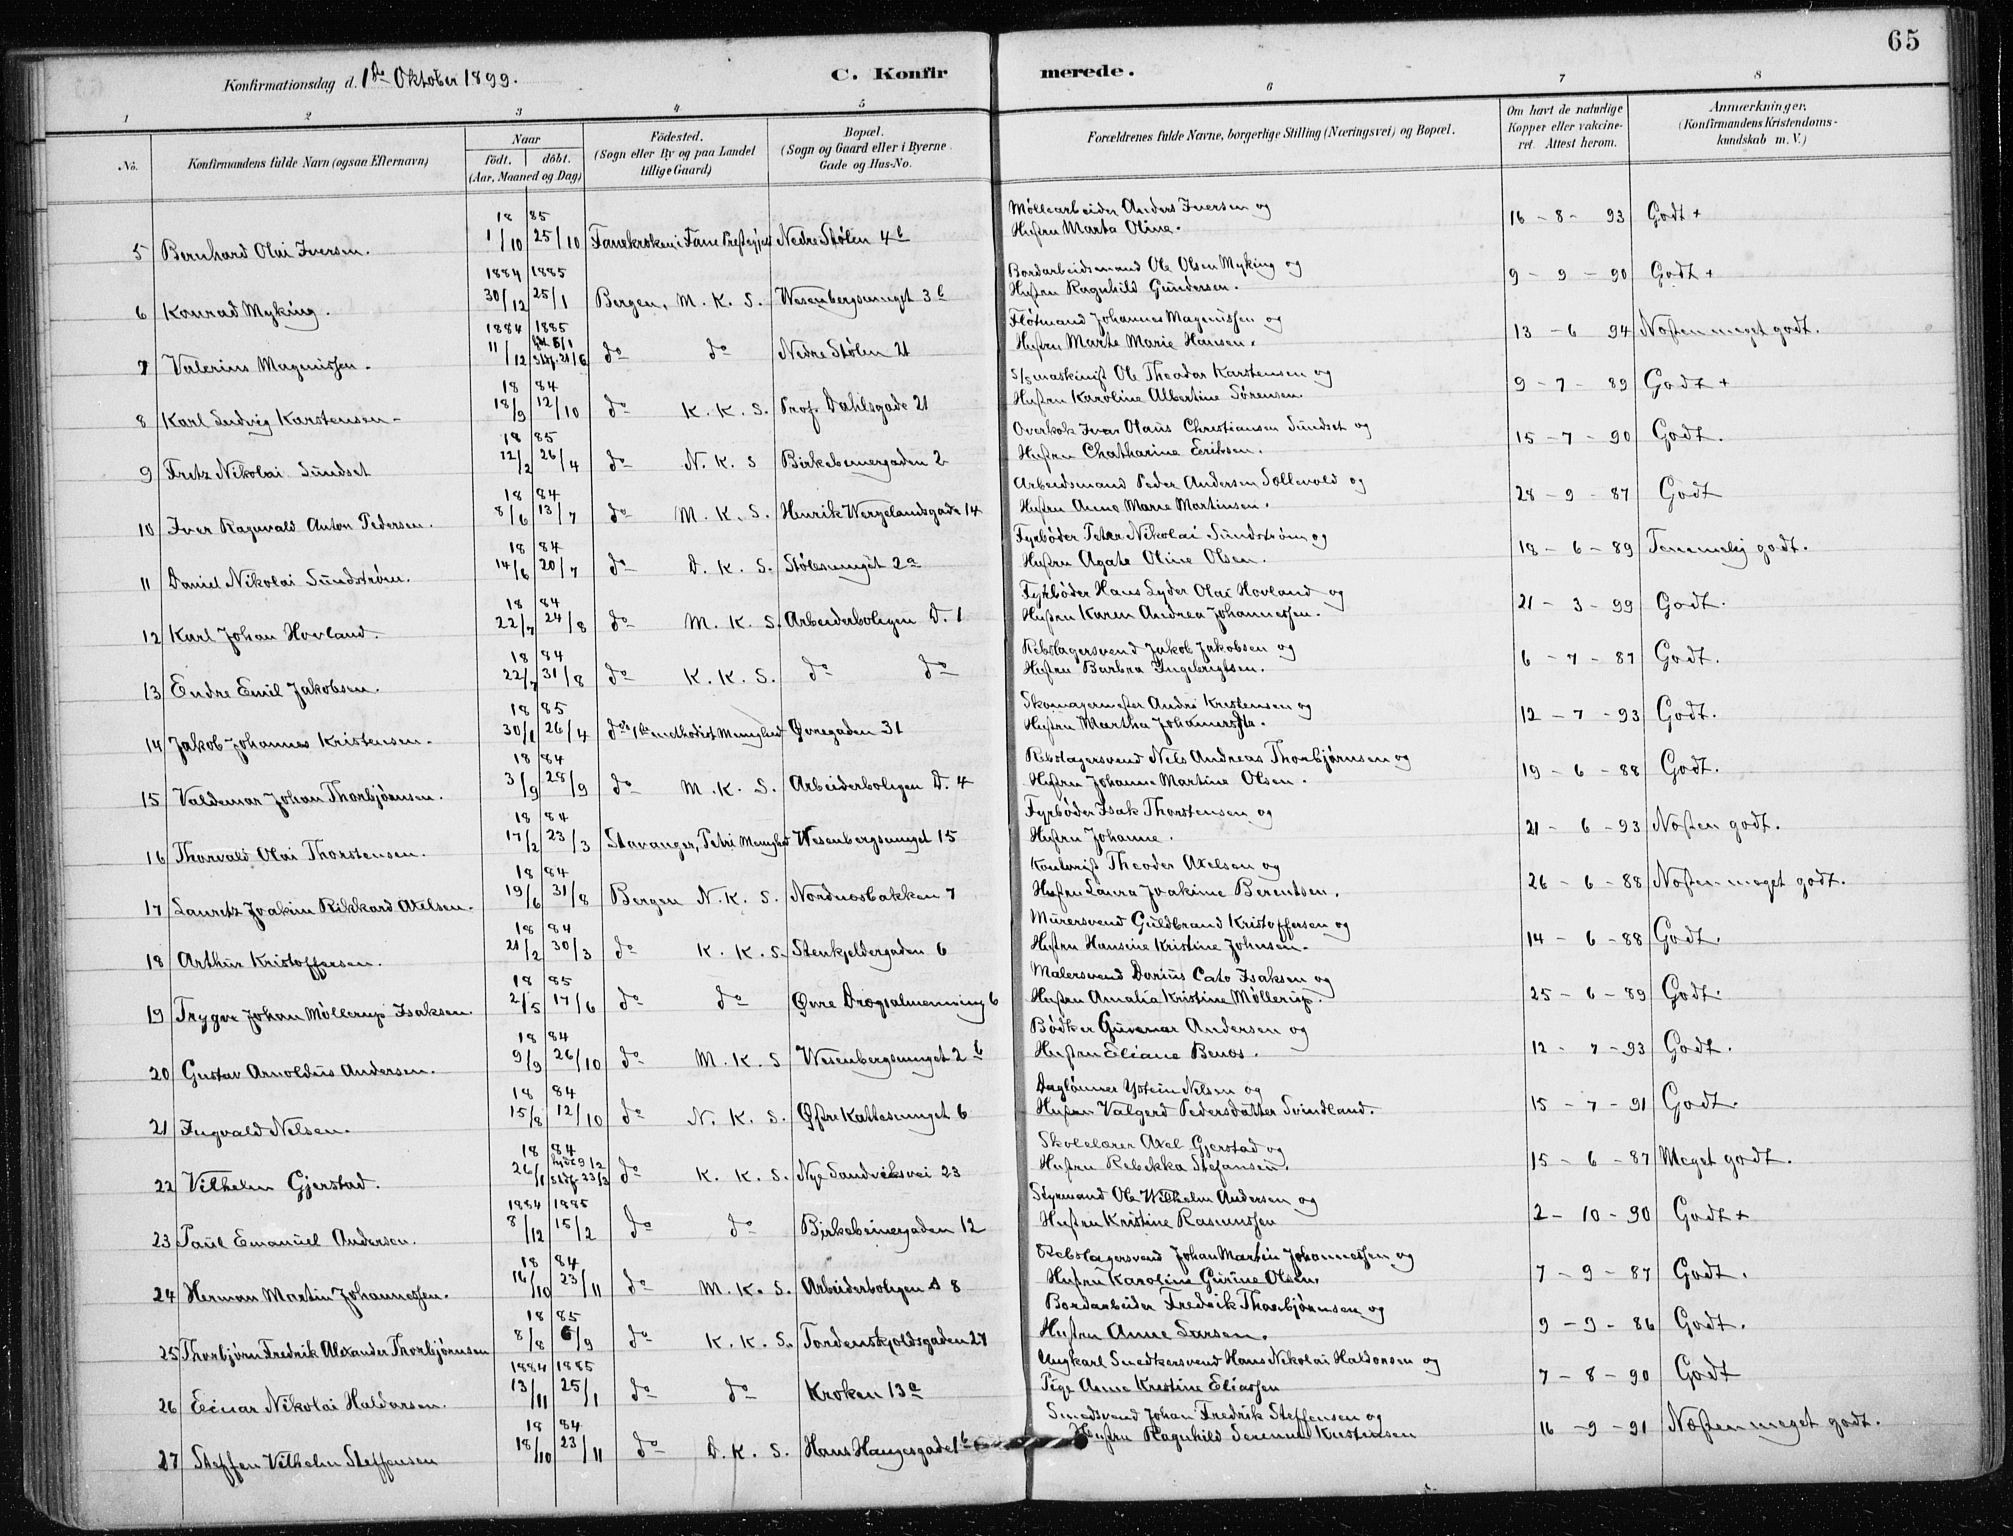 65
Konfirmationsdag d. 1ste Oktober 1899. C. Konfirmerede.
1 2 3 4 5 6 7 8
No. Konfirmandens fulde Navn (ogsaa Efternavn) Naar født. døbt. (Aar, Maaned og Dag) Fødested. (Sogn eller By og paa Landet tillige Gaard) Bopæl. (Sogn og Gaard eller i Byerne Gade og Hus-No. Forældrenes fulde Navne, borgerlige Stilling (Næringsvei) og Bopæl. Om havt de naturlige Kopper eller vakcineret. Attest herom. Anmærkninger. (Konfirmandens Kristendomskundskab m. V.)
18 85 Møllearbeider Anders Iversen og
5 Bernhard Olai Iversen. 1/10 25/10 Fanekroken i Fane Prestegjeld Nedre Stølen 4b Hustru Marta Olina. 16-8-93 Godt +
1884 1885 Bordarbeidsmand Ole Olsen Myking og
6 Konrad Myking. 30/12 25/1 Bergen, M. K. S. Wesenbergsmuget 3b Hustru Ragnhild Gundersen. 9-9-90 Godt +
1884 1885 Fløtmand Johannes Magnussen og
7 Valerius Magnussen. 11/12 5/1 Stdf. 21/6 do do Nedre Stølen 21 Hustru Marte Marie Hansen. 13-6-94 Næsten meget godt.
18 84 S/S maskinist Ole Theodor Karstensen og
8 Karl Ludvig Karstensen 18/9 12/10 do K. K. S. Prof. Dahlsgade 21 Hustru Karoline Albertine Sørensen. 9-7-89 Godt +
18 85 Overkok Ivar Olaus Christiansen Sundset og
9 Fritz Nikolai Sundset 12/2 26/4 do N. K. S Birkebeinergaden 2 Hustru Chatharine Eriksen. 15-7-90 Godt.
18 84 Arbeidsmand Peder Andersen Sollevold og
10 Iver Ragnvald Anton Pedersen. 8/6 13/7 do M. K. S. Henrik Wergelandsgade 14 Hustru Anne Marie Martinsen. 28-9-87 Godt
18 84 Fyrbøder Peter Nikolai Sundstrøm og
11 Daniel Nikolai Sundstrøm. 14/6 20/7 do D. K. S. Stølesmuget 2a Hustru Agate Oline Olsen. 18-6-89 Temmelig godt.
18 84 Fyrbøder Hans Lyder Olai Hovland og
12 Karl Johan Hovland. 22/7 24/8 do M. K. S. Arbeiderboligen D. 1 Hustru Karen Andrea Johannessen. 21-3-99 Godt.
18 84 Rebslagersvend Jakob Jakobsen og
13 Endre Emil Jakobsen. 22/7 31/8 do K. K. S. do do Hustru Barbra Ingebrigtsen. 6-7-87 Godt.
18 85 Skomagermester Andre Kristensen og
14 Jakob Johannes Kristensen. 30/1 26/4 do 1ste methodist Menighed Øvregaden 31 Hustru Martha Johannesdtr. 12-7-93 Godt.
18 84 Rebslagersvend Nels Andreas Thorbjørnsen og
15 Valdemar Johan Thorbjørnsen. 3/9 28/9 do M. K. S. Arbeiderboligen D. 4 Hustru Johanne Martine Olsen. 19-6-88 Godt.
18 84 Fyrbøder Isak Thorstensen og
16 Thorvald Olai Thorstensen. 17/2 23/3 Stavanger, Petri Menighed Wesenbergsmuget 15 Hustru Johanne. 21-6-93 Næsten godt.
18 84 Kontorist Theodor Axelsen og
17 Lauretz Joakim Rikkard Axelsen. 19/6 31/8 Bergen N. K. S. Nordnæsbakken 7 Hustru Laura Joakime Berentsen. 26-6-88 Næsten meget godt.
18 84 Murersvend Guldbrand Kristoffersen og
18 Arthur Kristoffersen. 21/2 30/3 do K. K. S. Stenkjeldergaden 6 Hustru Hansine Kristine Johnsen. 14-6-88 Godt.
18 85 Malersvend Darius Cato Isaksen og
19 Trygve Johan Møllerup Isaksen. 2/5 17/6 do do Øvre Dragsalmenning 6 Hustru Amalia Kristine Møllerup. 25-6-89 Godt.
18 84 Bødker Gunnar Andersen og
20 Gustav Arnoldus Andersen. 9/9 26/10 do M. K. S Wesenbergsmuget 2b Hustru Eliane Benos. 12-7-93 Godt.
18 84 Daglønner Ystein Nelsen og
21 Ingvald Nelsen. 15/8 12/10 do N. K. S. Østre Kattesmuget 6 Hustru Valgerd Pedersdatter Svindland. 15-7-91 Godt.
18 84 Skolelærer Axel Gjerstad og
22 Vilhelm Gjerstad. 26/1 hjdt 9/2 Stdf. 23/3 do K. K. S. Nye Sandviksvei 23 Hustru Rebekka Stefansen. 15-6-87 Meget godt.
1884 1885 Styrmand Ole Wilhelm Andersen og
23 Paul Emanuel Andersen. 8/12 15/2 do do Birkebeinergaden 12 Hustru Kristine Rasmussen 2-10-90 Godt +
18 84 Rebslagersvend Johan Martin Johannessen og
24 Herman Martin Johannessen. 16/10 23/11 do M. K. S. Arbeiderboligen A 8 Hustru Karoline Gurine Olsen. 7-9-87 Godt.
18 85 Bordarbeider Fredrik Thorbjørnsen og
25 Thorbjørn Fredrik Alexander Thorbjørnsen 8/8 6/9 do K. K. S. Tordenskjoldsgaden 27 Hustru Anne Larsen. 9-9-86 Godt.
1884 1885 Ungkarl Snedkersvend Hans Nikolai Haldorsen og
26 Einar Nikolai Haldorsen. 13/11 25/1 do do Kroken 13a Pige Anne Kristine Eliassen 7-8-90 Godt
18 84 Smedsvend Johan Fredrik Steffensen og
27 Steffen Vilhelm Steffensen 18/10 23/11 do D. K. S. Hans Haugesgade 1b Hustru Ragnhild Serenne Kristensen 16-9-91 Næsten meget godt.